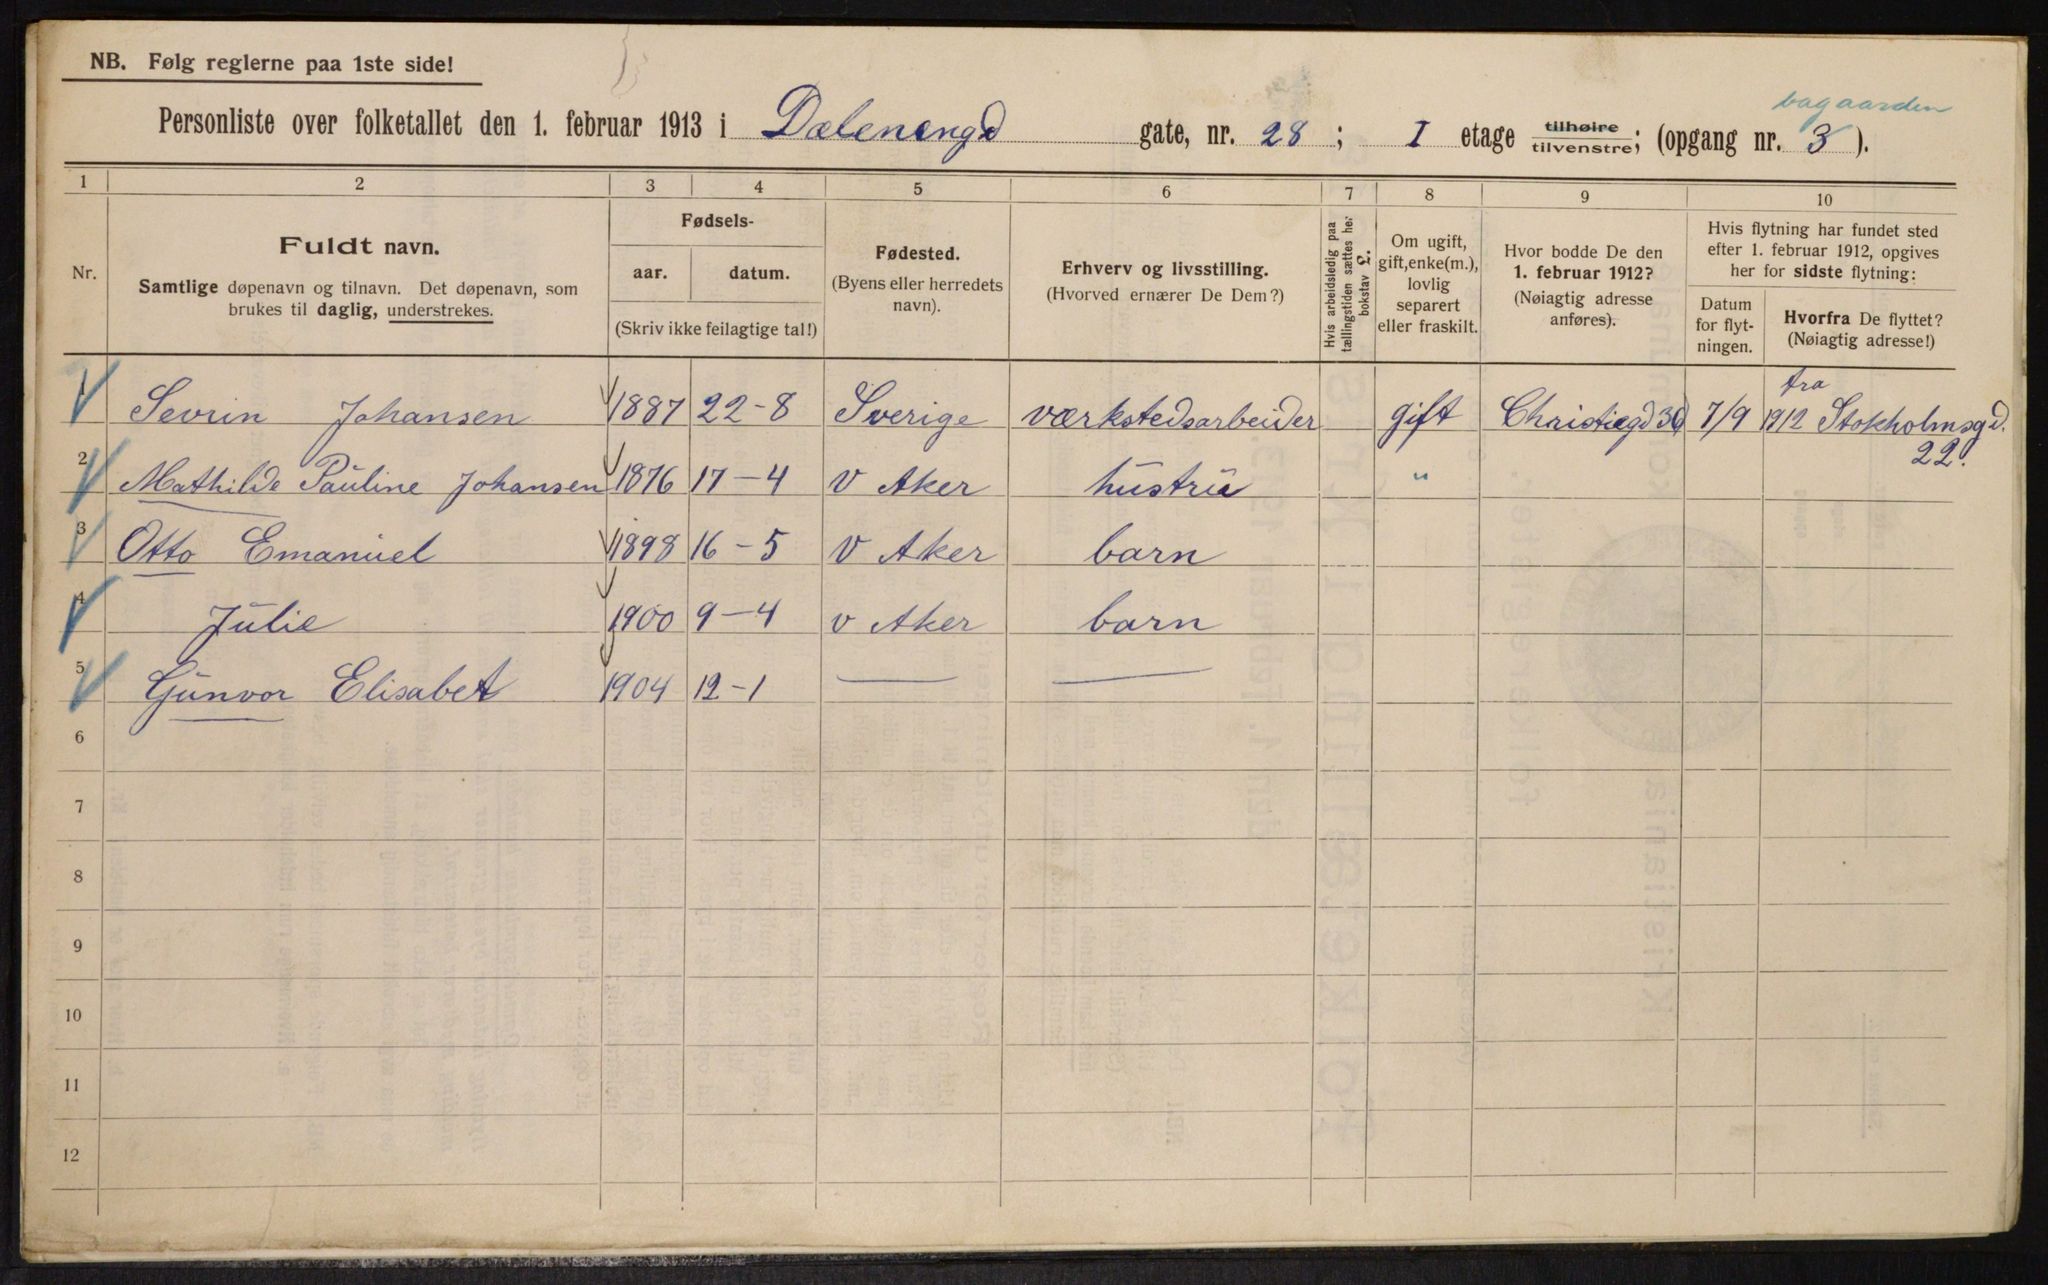 NB. Følg reglerne paa 1ste side!
bagaarden
Personliste over folketallet den 1. februar 1913 i Dælenengd gate, nr. 28; I etage tilhøire tilvenstre; (opgang nr. 3).
1 2 3 4 5 6 7 8 9 10
Nr.
Fuldt navn.
Samtlige døpenavn og tilnavn. Det døpenavn, som
brukes til daglig, understrekes.
Fødsels-
aar. datum.
(Skriv ikke feilagtige tal!)
Fødested.
(Byens eller herredets
navn).
Erhverv og livsstilling.
(Hvorved ernærer De Dem?)
Hvis arbeidsledig paa
tællingstiden sættes her
bokstav L.
Om ugift,
gift, enke(m.),
lovlig
separert
eller fraskilt.
Hvor bodde De den
1. februar 1912?
(Nøiagtig adresse
anføres).
Hvis flytning har fundet sted
efter 1. februar 1912, opgives
her for sidste flytning:
Datum
for flyt-
ningen.
Hvorfra De flyttet?
(Nøiagtig adresse!)
fra
1 Sevrin Johansen 1887 22-8 Sverige værkstedsarbeider gift Christiegd 36 7/9 1912 Stokholmsgd.
22.
2 Mathilde Pauline Johansen 1876 17-4 V Aker hustru "
3 Otto Emanuel 1898 16-5 V Aker barn
4 Julie 1900 9-4 v Aker barn
5 Gunvor Elisabet 1904 12-1 — —
6
7
8
9
10
11
12